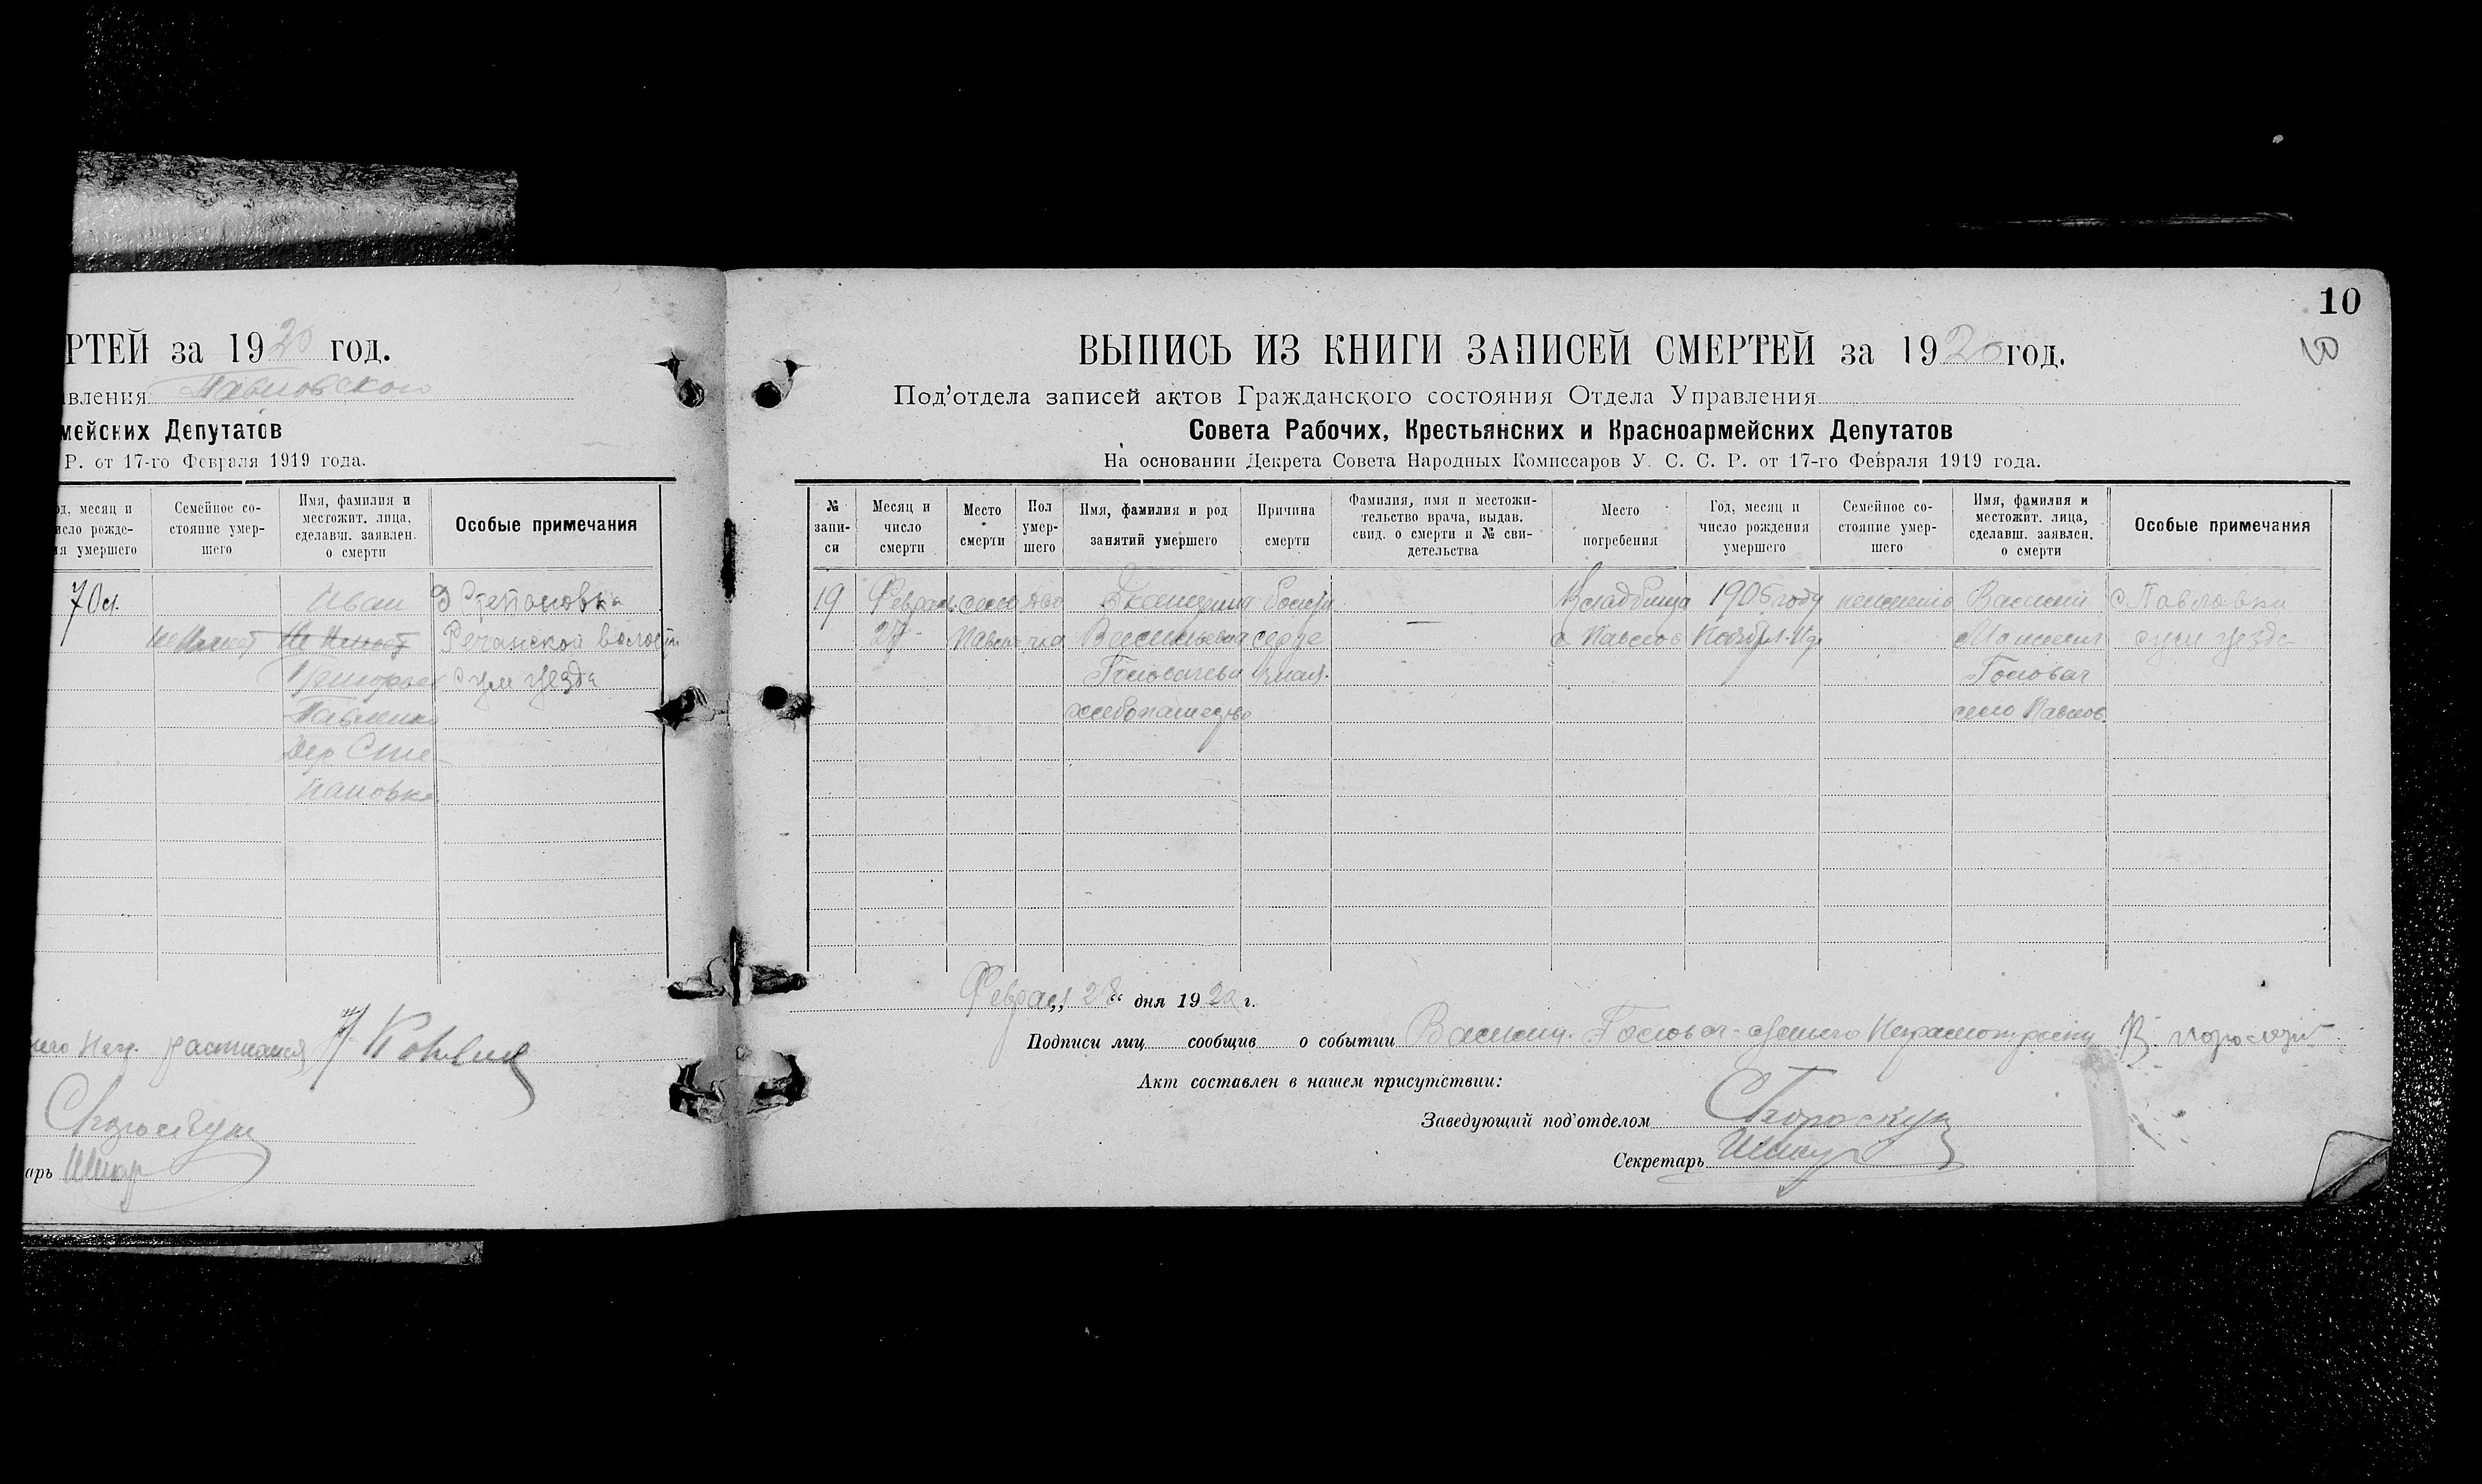 РТЕЙ за 1920 год.
авления Павловского
мейских Депутатов
Р. от 17-го Февраля 1919 года.
од, месяц и
исло рожде-
ия умершего
Семейное со-
стояние умер-
шего
Имя, фамилия и
местожит. лица,
сделавш. заявлен.
о смерти
Особые примечания
70 л.
Иван
Григорьев
Павленко
Дер Сте-
пановка
Д Степановка
Речанской волости
Сум уезда
расписался
арь
10
10
ВЫПИСЬ ИЗ КНИГИ ЗАПИСЕЙ СМЕРТЕЙ за 1920 год.
Под'отдела записей актов Гражданского состояния Отдела Управления
Совета Рабочих, Крестьянских и Красноармейских Депутатов
На основании Декрета Совета Народных Комиссаров У. С. С. Р. от 17-го Февраля 1919 года.
№
запи-
си
Месяц и
число
смерти
Место
смерти
Пол
умер-
шего
Имя, фамилия и род
занятий умершего
Причина
смерти
Фамилия, имя и местожи-
тельство врача, выдав.
свид. о смерти и № сви-
детельства
Место
погребения
Год, месяц и
число рождения
умершего
Семейное со-
стояние умер-
шего
Имя, фамилия и
местожит. лица,
сделавш. заявлен.
о смерти
Особые примечания
19
Феврал.
27
село
Павлов
Дево
чка
Екатерина
Васильевна
Головачева
хлебопашество
—
Кладбища
с Павлов
1905 году
Василий
Головач
село Павлов.
с Павловки
Сум уезда
Феврал „ 28 “ дня 1920 г.
Подписи лиц сообщив о событии Василий Головач
Акт составлен в нашем присутствии:
Заведующий под'отделом
Секретарь